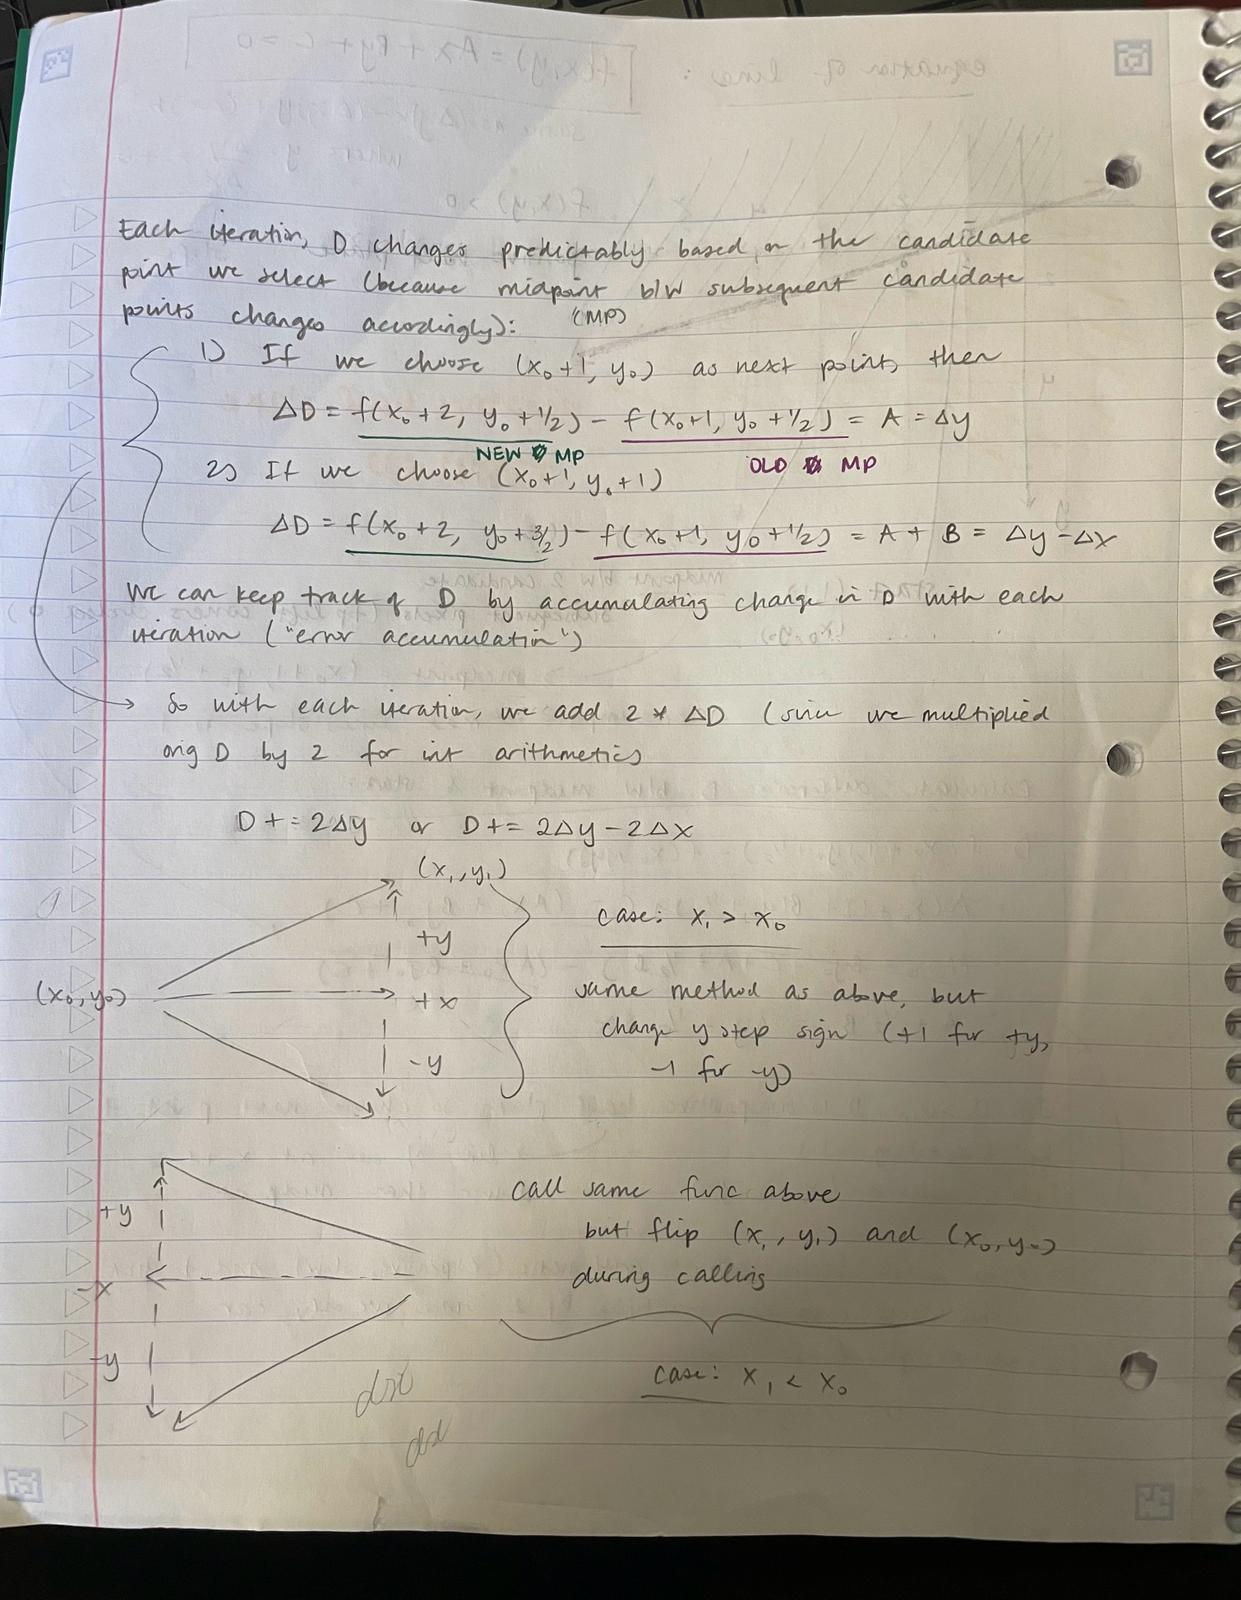 Each iteration, D changes predictably based on the candidate
point we select (because midpoint b/w subsequent candidate
points changes accordingly): (MP)
1) If we choose (x₀+1, y₀) as next point, then
ΔD = f(x₀+2, y₀+1/2) - f(x₀+1, y₀+1/2) = A = Δy
NEW MP OLD MP
2) If we choose (x₀+1, y₀+1)
ΔD = f(x₀+2, y₀+3/2) - f(x₀+1, y₀+1/2) = A + B = Δy-Δx
We can keep track of D by accumulating change in D with each
iteration ("error accumulation")
→ So with each iteration, we add 2 * ΔD (since we multiplied
orig D by 2 for int arithmetic)
D += 2Δy or D += 2Δy-2Δx
(x₁, y₁)
case: x₁ > x₀
+y
(x₀, y₀)
+x
same method as above, but
change y step sign (+1 for +y,
-y
-1 for -y)
call same func above
+y
but flip (x₁, y₁) and (x₀, y₀)
-x
during calling
-y
case: x₁ < x₀
dx
dx